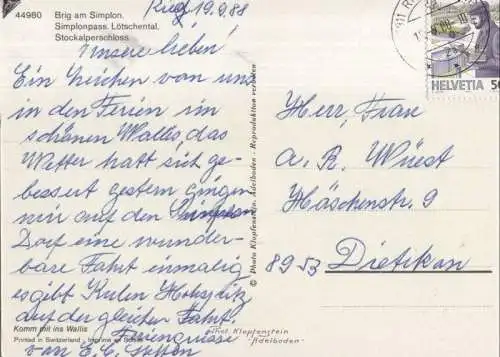 44980 Brig am Simplon.
Simplonpass. Lötschental.
Stockalperschloss.
19.9.88
Unsere Lieben!
Ein Zeichen von uns
in den Ferien im
schönen Wallis, das
Wetter hatt sich ge-
bessert gestern gingen
wir auf den Simplon
Dorf eine wunder-
bare Fahrt einmalig
es gibt
auf der gleichen Fahrt.
von E.C.
Komm mit ins Wallis
Printed in Switzerland - Imprimé en Suisse
© Photo Klopfenstein, Adelboden - Reproduktion verboten
Klopfenstein
"Adelboden"
HELVETIA 50
Herr, Frau
A. R. Wüest
Häschenstr. 9
8953 Dietikon